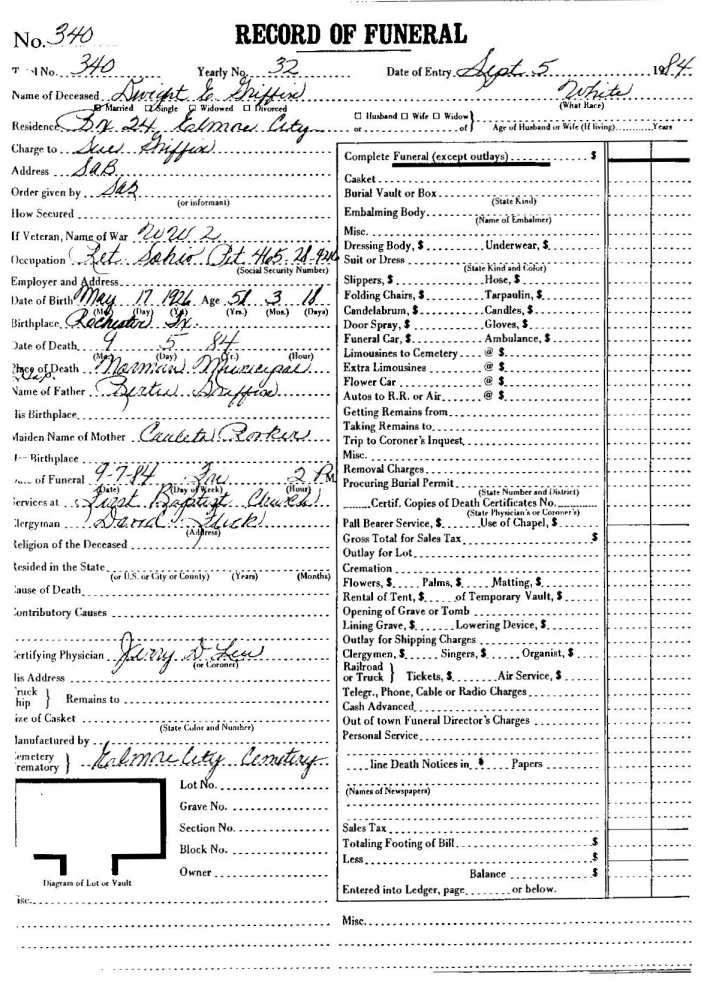 No. 340
RECORD OF FUNERAL
No. 340 Yearly No. 32 Date of Entry Sept. 5 1984
Name of Deceased Dwight E Griffin White
Married Single Widowed Divorced (What Race)
Residence Bx 24 Elmore City Husband Wife Widow or of Age of Husband or Wife (If living) Years
Charge to Sue Griffin
Address SAB
Order given by SAB
(or informant)
How Secured
If Veteran, Name of War WW 2
Occupation Ret Sohio Pet 465-28-
(Social Security Number)
Employer and Address
Date of Birth May 17 1926 Age 58 3 18
(Mo.) (Day) (Yr.) (Yrs.) (Mos.) (Days)
Birthplace Rochester Tx.
Date of Death 9 5 84
(Mo.) (Day) (Yr.) (Hour)
Place of Death Norman Municipal
Hosp.
Name of Father Griffin
His Birthplace
Maiden Name of Mother
Birthplace
of Funeral 9-7-84 Fri 2 P.M.
(Date) (Day of Week) (Hour)
Services at First Baptist Church
Clergyman David Flick
(Address)
Religion of the Deceased
Resided in the State
(or U.S. or City or County) (Years) (Months)
Cause of Death
Contributory Causes
Certifying Physician Jerry D
(or Coroner)
His Address
Truck
Ship } Remains to
Size of Casket
(State Color and Number)
Manufactured by
Cemetery
Crematory } Elmore City Cemetery
Lot No.
Grave No.
Section No.
Block No.
Owner
Diagram of Lot or Vault
Misc.
Complete Funeral (except outlays) $
Casket
Burial Vault or Box
(State Kind)
Embalming Body
(Name of Embalmer)
Misc.
Dressing Body, $ Underwear, $
Suit or Dress
(State Kind and Color)
Slippers, $ Hose, $
Folding Chairs, $ Tarpaulin, $
Candelabrum, $ Candles, $
Door Spray, $ Gloves, $
Funeral Car, $ Ambulance, $
Limousines to Cemetery @ $
Extra Limousines @ $
Flower Car @ $
Autos to R.R. or Air @ $
Getting Remains from
Taking Remains to
Trip to Coroner's Inquest
Misc.
Removal Charges
Procuring Burial Permit
(State Number and District)
Certif. Copies of Death Certificates No.
(State Physician's or Coroner's)
Pall Bearer Service, $ Use of Chapel, $
Gross Total for Sales Tax $
Outlay for Lot
Cremation
Flowers, $ Palms, $ Matting, $
Rental of Tent, $ of Temporary Vault, $
Opening of Grave or Tomb
Lining Grave, $ Lowering Device, $
Outlay for Shipping Charges
Clergymen, $ Singers, $ Organist, $
Railroad
or Truck } Tickets, $ Air Service, $
Telegr., Phone, Cable or Radio Charges
Cash Advanced
Out of town Funeral Director's Charges
Personal Service
line Death Notices in Papers
(Names of Newspapers)
Sales Tax
Totaling Footing of Bill $
Less $
Balance $
Entered into Ledger, page or below.
Misc.